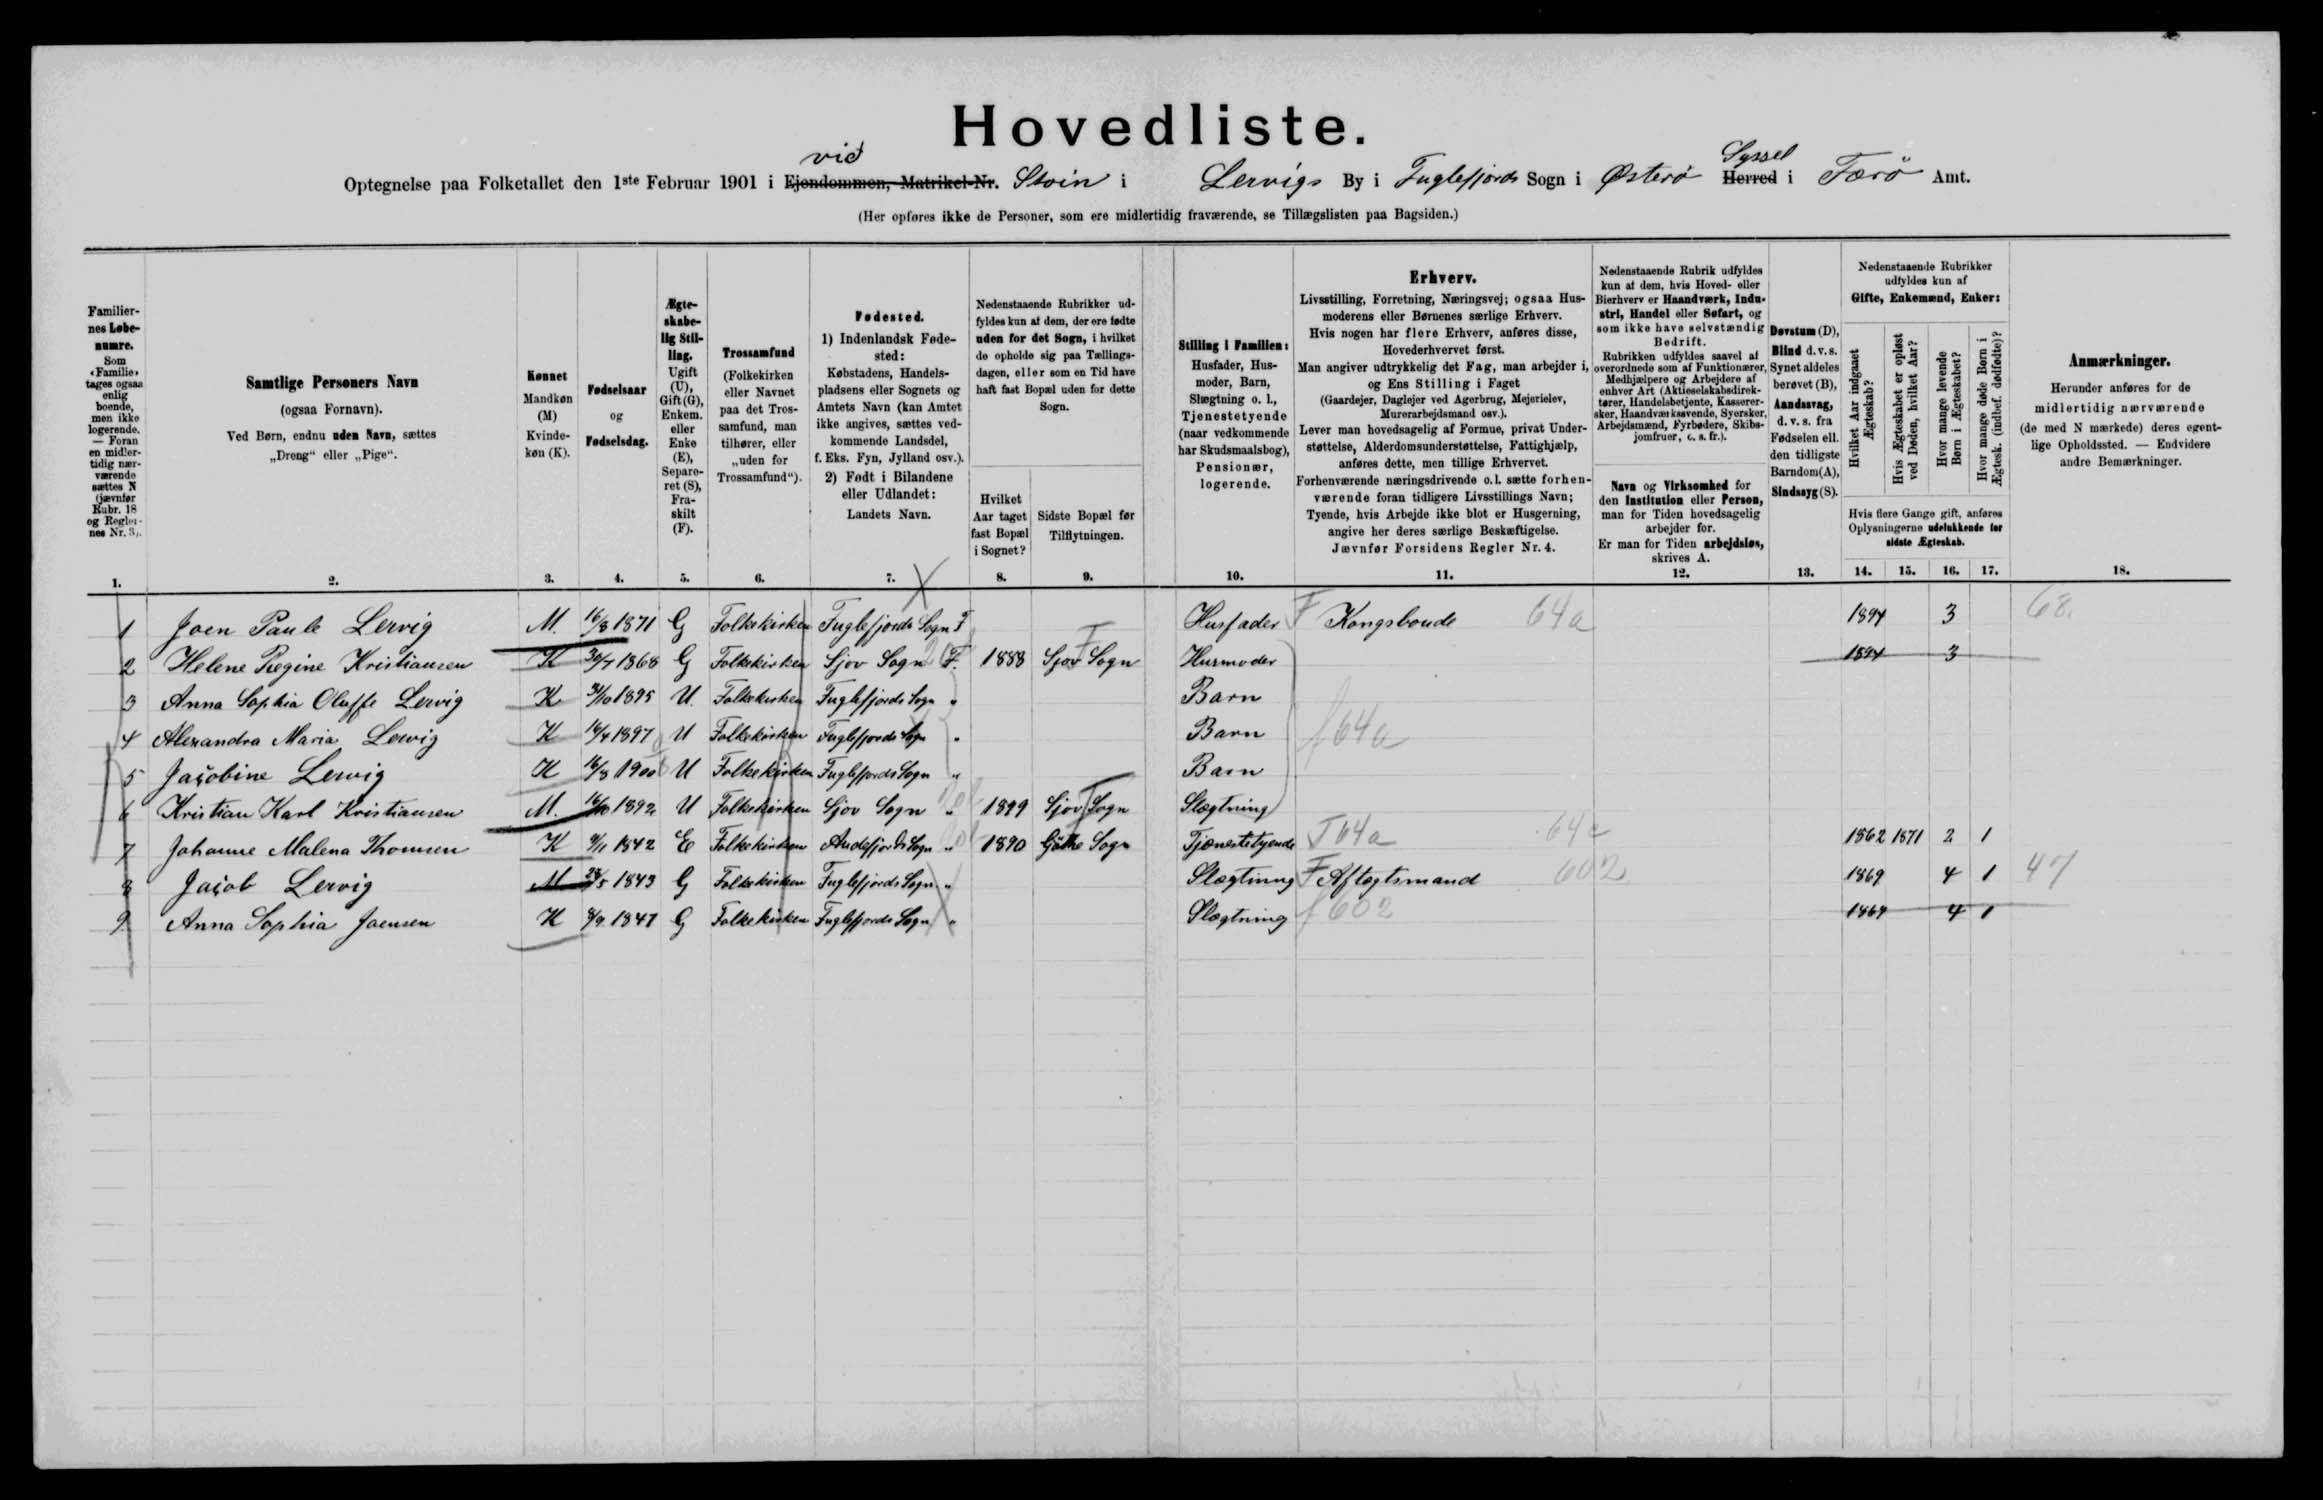 Hovedliste.
vid Syssel
Optegnelse paa Folketallet den 1ste Februar 1901 i Ejendommen, Matrikel-Nr. Stoin i Lervigs By i Fuglefjords Sogn i Østerø Herred i Færø Amt.
(Her opføres ikke de Personer, som ere midlertidig fraværende, se Tillægslisten paa Bagsiden.)
Familiernes Løbenumre. Som «Familie» tages ogsaa enlig boende, men ikke logerende. — Foran en midlertidig nærværende sættes N (jævnfør Rubr. 18 og Reglernes Nr. 3).
Samtlige Personers Navn (ogsaa Fornavn). Ved Børn, endnu uden Navn, sættes „Dreng“ eller „Pige“.
Kønnet Mandkøn (M) Kvindekøn (K).
Fødselsaar og Fødselsdag.
Ægteskabelig Stilling. Ugift (U), Gift (G), Enkem. eller Enke (E), Separeret (S), Fraskilt (F).
Trossamfund (Folkekirken eller Navnet paa det Trossamfund, man tilhører, eller „uden for Trossamfund“).
Fødested. 1) Indenlandsk Fødested: Købstadens, Handelspladsens eller Sognets og Amtets Navn (kan Amtet ikke angives, sættes vedkommende Landsdel, f. Eks. Fyn, Jylland osv.). 2) Født i Bilandene eller Udlandet: Landets Navn.
Nedenstaaende Rubrikker udfyldes kun af dem, der ere fødte uden for det Sogn, i hvilket de opholde sig paa Tællingsdagen, eller som en Tid have haft fast Bopæl uden for dette Sogn.
Hvilket Aar taget fast Bopæl i Sognet?
Sidste Bopæl før Tilflytningen.
Stilling i Familien: Husfader, Husmoder, Barn, Slægtning o. l., Tjenestetyende (naar vedkommende har Skudsmaalsbog), Pensionær, logerende.
Erhverv. Livsstilling, Forretning, Næringsvej; ogsaa Husmoderens eller Børnenes særlige Erhverv. Hvis nogen har flere Erhverv, anføres disse, Hovederhvervet først. Man angiver udtrykkelig det Fag, man arbejder i, og Ens Stilling i Faget (Gaardejer, Daglejer ved Agerbrug, Mejerielev, Murerarbejdsmand osv.). Lever man hovedsagelig af Formue, privat Understøttelse, Alderdomsunderstøttelse, Fattighjælp, anføres dette, men tillige Erhvervet. Forhenværende næringsdrivende o. l. sætte forhenværende foran tidligere Livsstillings Navn; Tyende, hvis Arbejde ikke blot er Husgerning, angive her deres særlige Beskæftigelse. Jævnfør Forsidens Regler Nr. 4.
Nedenstaaende Rubrik udfyldes kun af dem, hvis Hoved- eller Bierhverv er Haandværk, Industri, Handel eller Søfart, og som ikke have selvstændig Bedrift. Rubrikken udfyldes saavel af overordnede som af Funktionærer, Medhjælpere og Arbejdere af enhver Art (Aktieselskabsdirektører, Handelsbetjente, Kasserersker, Haandværkssvende, Syersker, Arbejdsmænd, Fyrbødere, Skibsjomfruer, o. s. fr.).
Navn og Virksomhed for den Institution eller Person, man for Tiden hovedsagelig arbejder for. Er man for Tiden arbejdsløs, skrives A.
Døvstum (D), Blind d. v. s. Synet aldeles berøvet (B), Aandssvag, d. v. s. fra Fødselen ell. den tidligste Barndom (A), Sindssyg (S).
Nedenstaaende Rubrikker udfyldes kun af Gifte, Enkemænd, Enker:
Hvilket Aar indgaaet Ægteskab?
Hvis Ægteskabet er opløst ved Døden, hvilket Aar?
Hvor mange levende Børn i Ægteskabet?
Hvor mange døde Børn i Ægtesk. (indbef. dødfødte)?
Hvis flere Gange gift, anføres Oplysningerne udelukkende for sidste Ægteskab.
Anmærkninger. Herunder anføres for de midlertidig nærværende (de med N mærkede) deres egentlige Opholdssted. — Endvidere andre Bemærkninger.
1. 2. 3. 4. 5. 6. 7. 8. 9. 10. 11. 12. 13. 14. 15. 16. 17. 18.
1 Joen Paule Lervig M. 16/8 1871 G Folkekirken Fuglefjords Sogn F Husfader F Kongsbonde 64a 1894 3 68.
2 Helene Regine Kristiansen K 30/7 1868 G Folkekirken Sjov Sogn F. 1888 Sjov Sogn Husmoder 1894 3
3 Anna Sophia Oluffe Lervig K 31/10 1895 U. Folkekirken Fuglefjords Sogn " Barn
4 Alexandra Maria Lervig K 16/4 1897 U Folkekirken Fuglefjords Sogn " Barn f 64a
5 Jacobine Lervig K 16/8 1900 U Folkekirken Fuglefjords Sogn " Barn
6 Kristian Karl Kristiansen M. 16/10 1892 U Folkekirken Sjov Sogn " 1899 Sjov Sogn Slægtning
7 Johanne Malena Thomsen K 9/1 1842 E Folkekirken Andefjords Sogn " 1890 Gøthe Sogn Tjenestetyende T 64a 64a 1862 1871 2 1
8 Jacob Lervig M 28/5 1843 G Folkekirken Fuglefjords Sogn " Slægtning F Aftægtsmand 602 1869 4 1 47
9 Anna Sophia Joensen K 8/9 1847 G Folkekirken Fuglefjords Sogn " Slægtning f 602 1869 4 1